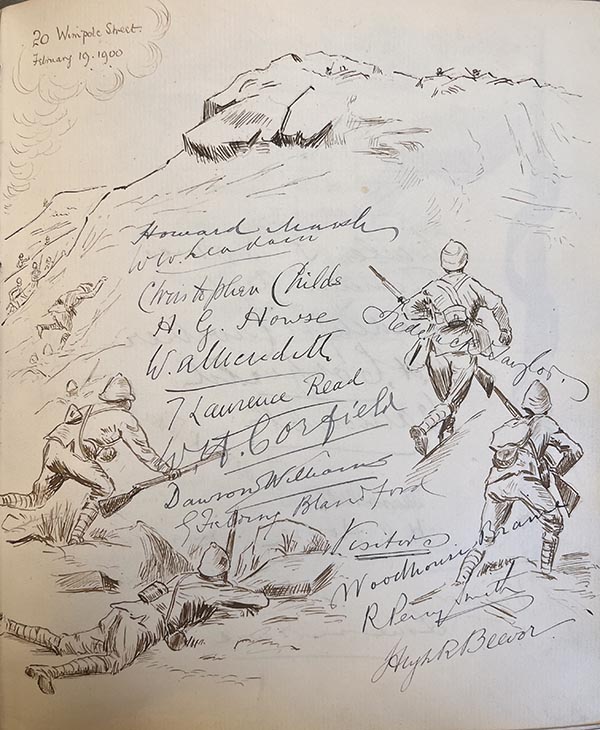 20 Wimpole Street.
February 19. 1900
Howard Marsh
W W Leadam
Christopher Childs
H. G. Howse
W. A. Meredith
Frederick Taylor
T Laurence Read
W H. Corfield
Dawson Williams
G Fielding Blandford
Visitors
Woodhouse Braine
R Percy Smith
Hugh R Beevor.